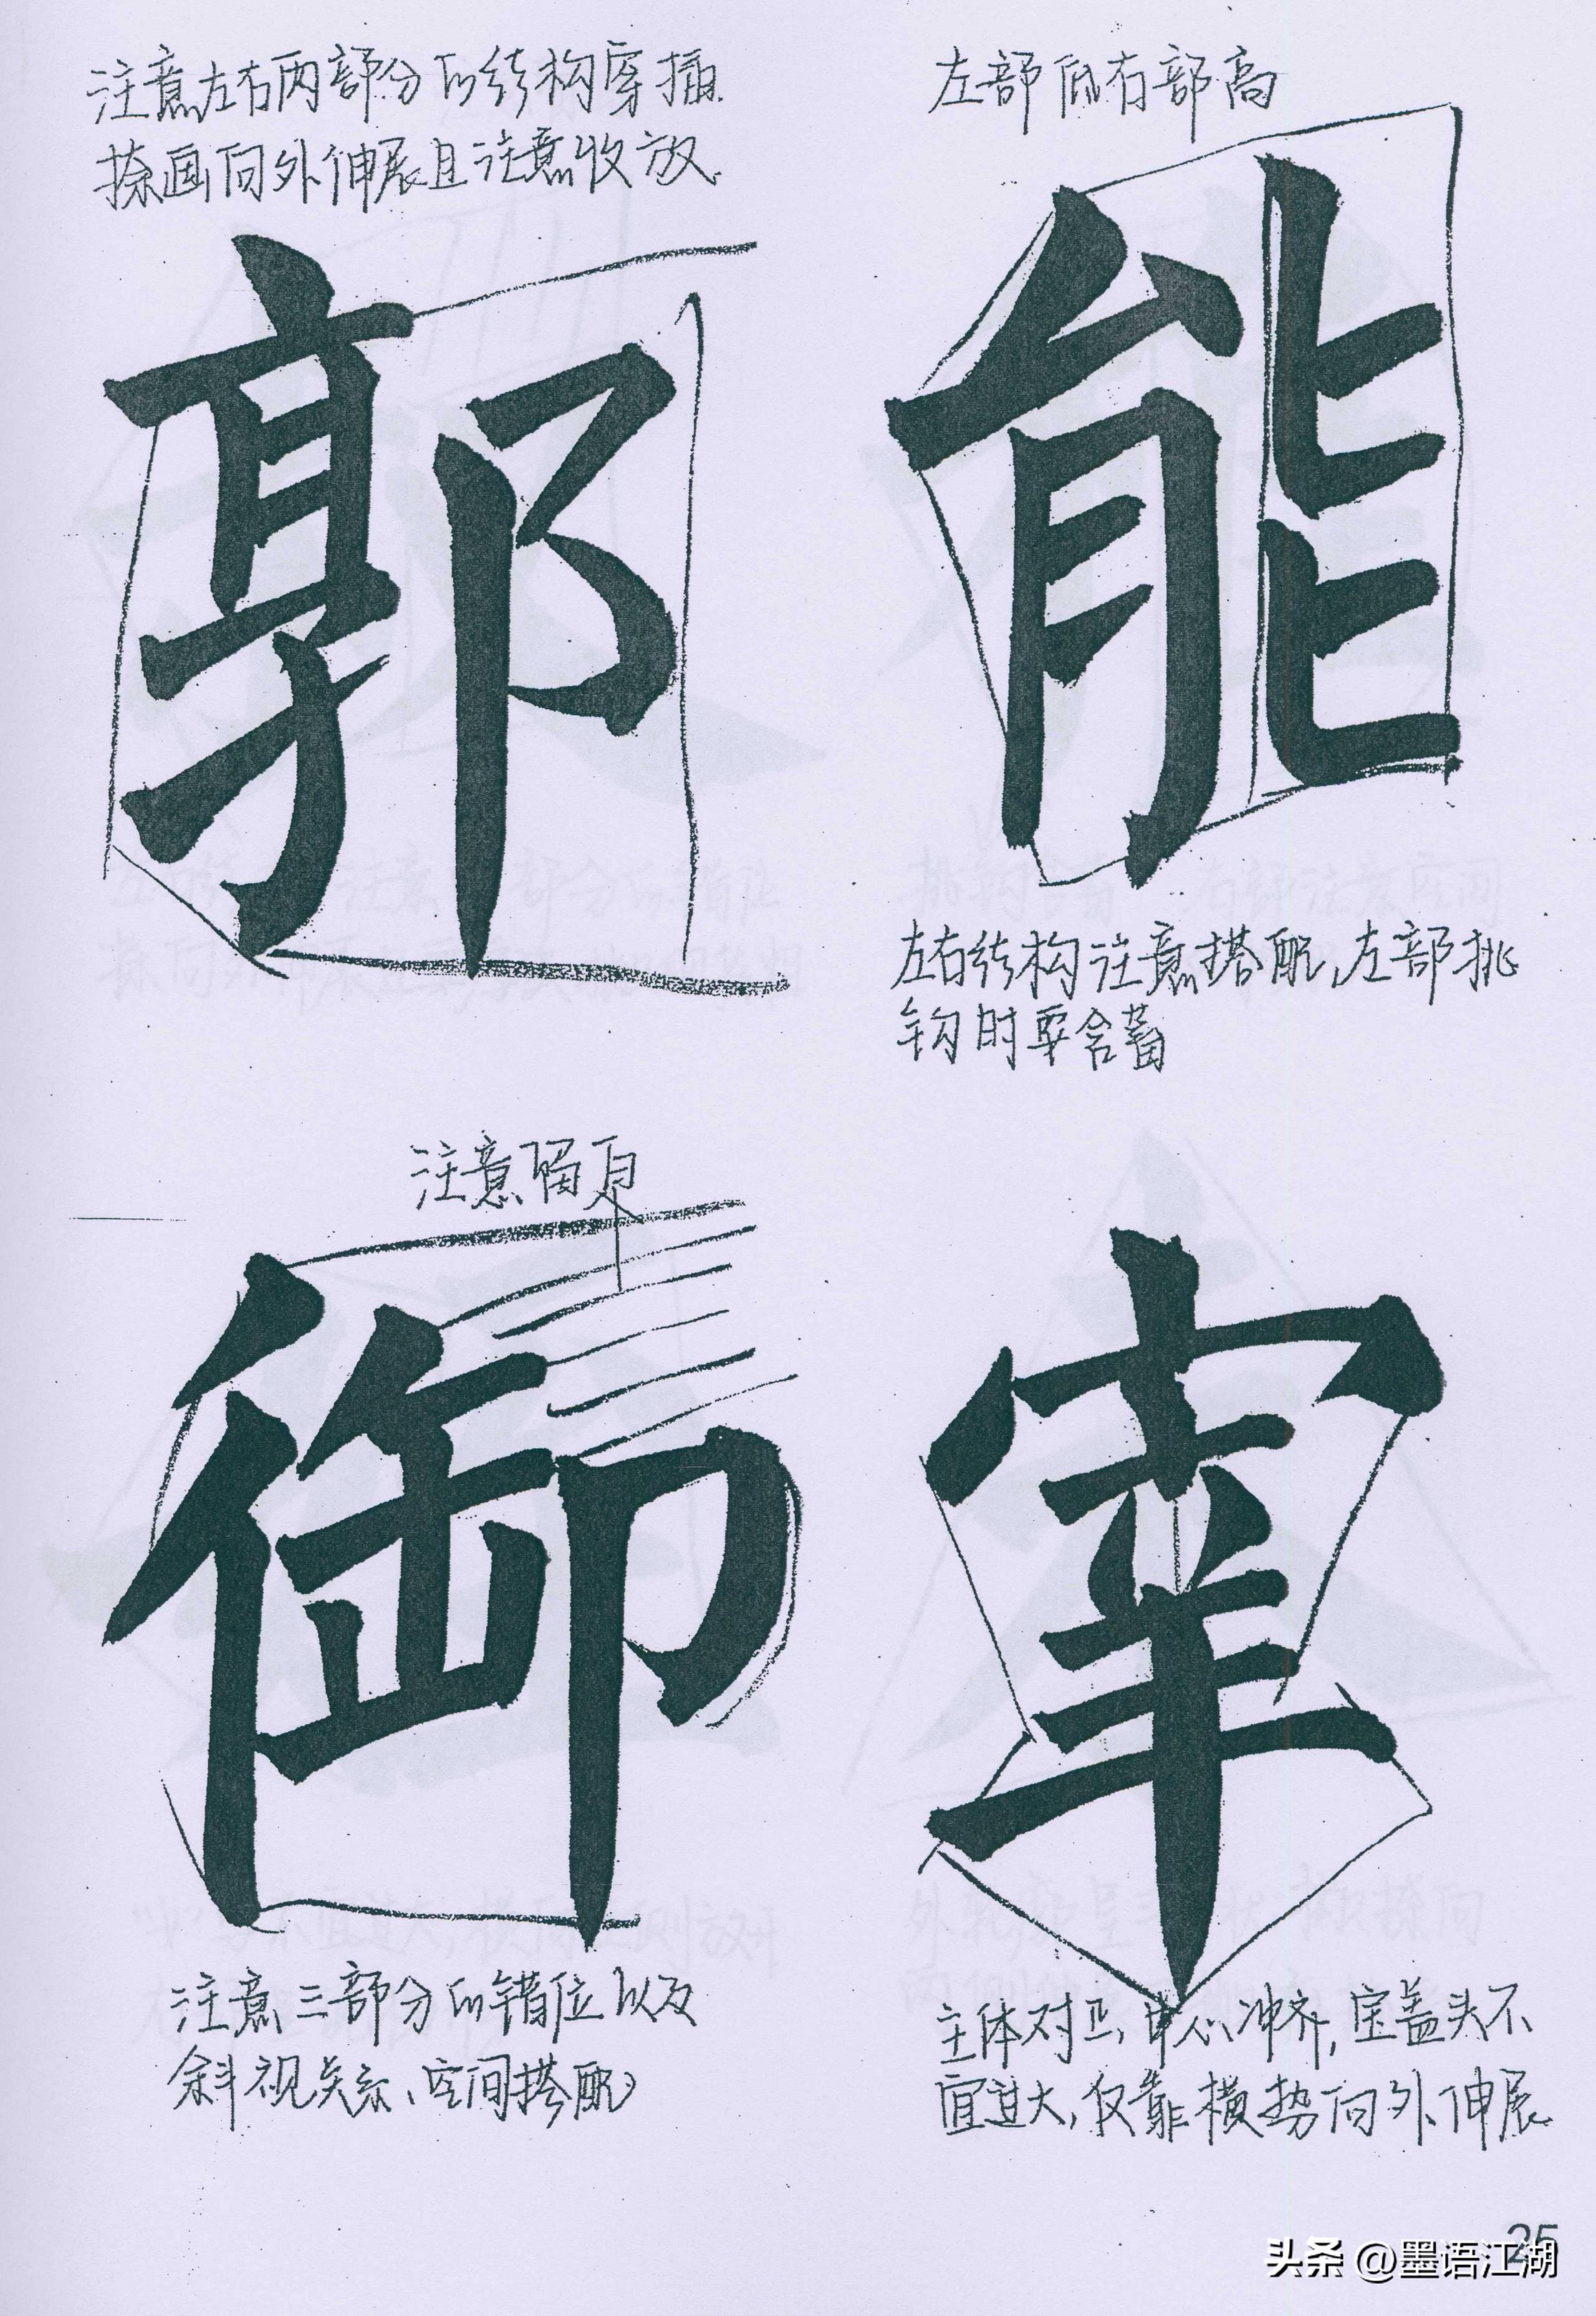 注意左右两部分的结构穿插
捺画向外伸展且注意收放.
郭
左部低右部高
能
左右结构注意搭配,左部挑
钩时要含蓄
注意留白
御
注意三部分的错位以及
斜视关系、空间搭配
宰
主体对正,中心冲齐,宝盖头不
宜过大,仅靠横势向外伸展
25
头条 @墨语江湖